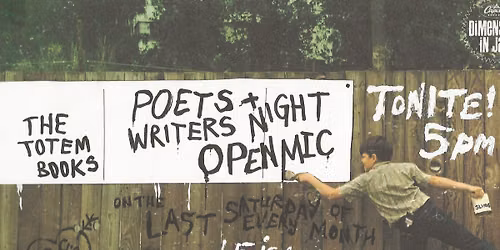 DiMENS
iN J
THE
TOTEM
BOOKS
POETS + NIGHT
WRITERS
OPEN MIC
TONITE!
5pm
ON THE
LAST SATURDAY OF
EVERY MONTH